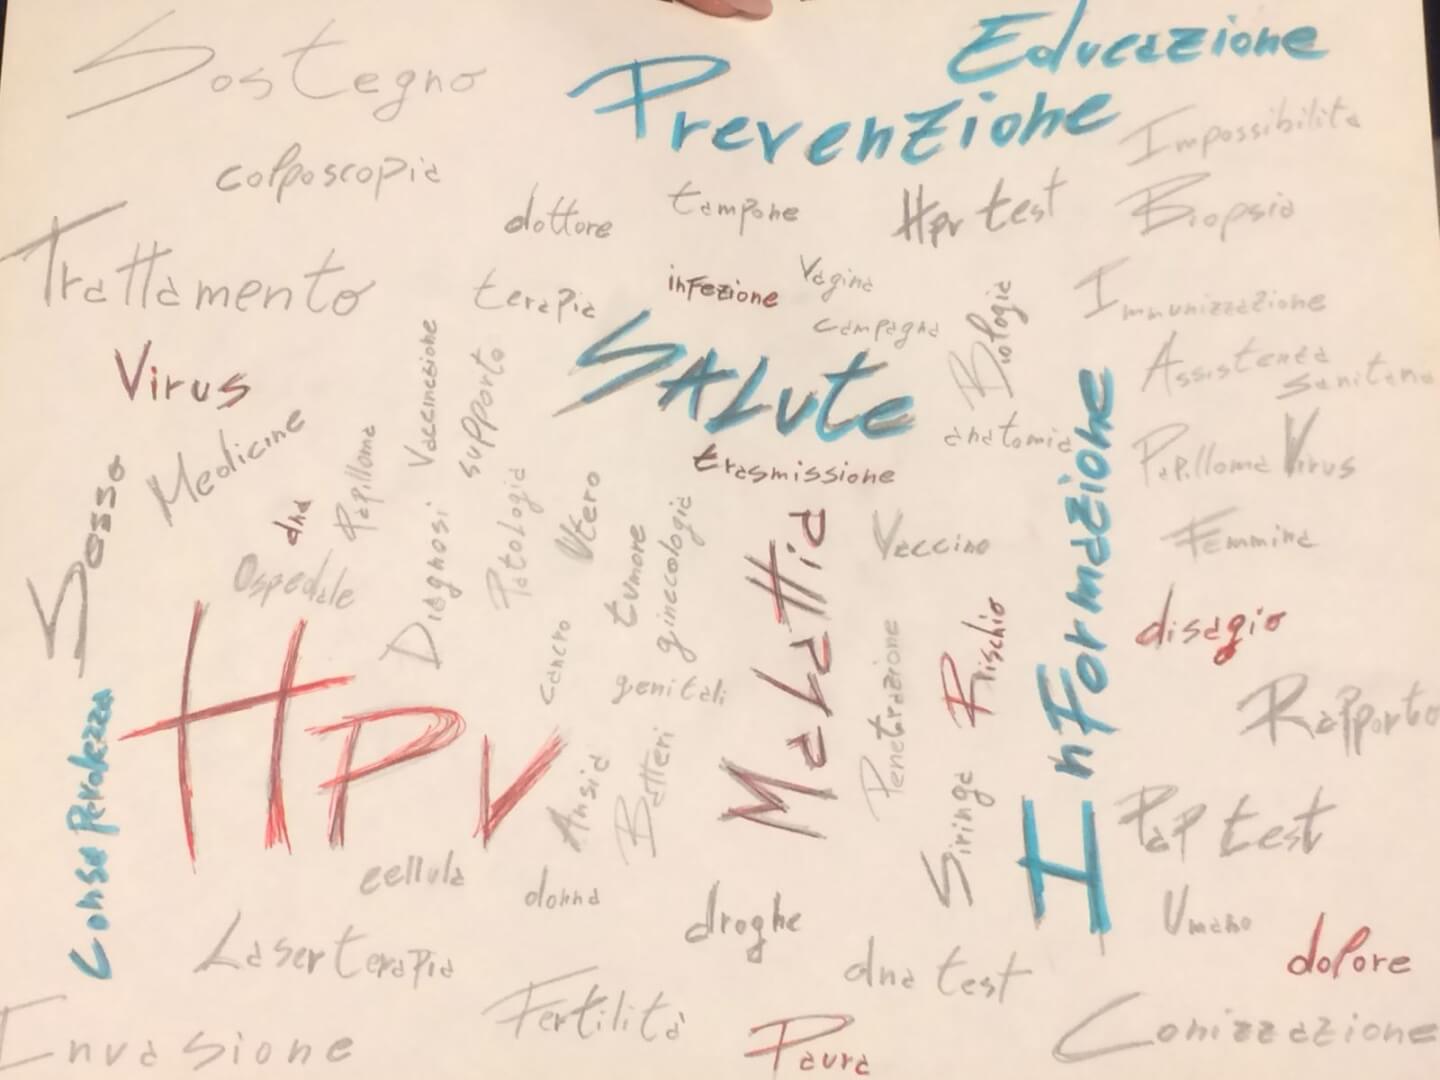 Sostegno
Educazione
Prevenzione
Impossibilità
colposcopia
dottore
tampone
Hpv test
Biopsia
Trattamento
terapia
infezione
Vagina
campagna
Biologia
Immunizzazione
Virus
Vaccinazione
supporto
SALUTE
anatomia
Assistenza
sanitaria
Medicine
Papilloma
trasmissione
Papilloma Virus
Sesso
dna
Diagnosi
Patologia
Utero
tumore
ginecologia
Malattia
Vaccino
Informazione
Femmina
Ospedale
HPV
cancro
genitali
Penetrazione
Rischio
disagio
Rapporto
Consapevolezza
Ansia
Batteri
Siringa
Pap test
cellula
donna
droghe
Umano
Laserterapia
dna test
dolore
Invasione
Fertilità
Paura
Conizzazione